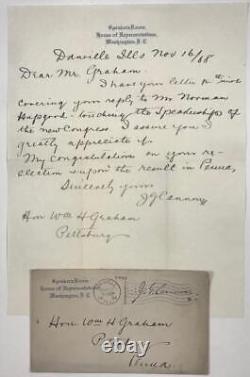 Speaker's Room,
House of Representatives,
Washington, D.C.
Danville Ills Nov 16/08
Dear Mr. Graham.
I have your letter
covering your reply to Mr Norman
Hapgood - touching the Speakership of
the new Congress. I assure you I
greatly appreciate it.
My congratulations on your re-
election & upon the result in Penna,
Sincerely yours
J G Cannon
Hon Wm H Graham
Pittsburg
Speaker's Room
House of Representatives
Washington, D.C.
J. G. Cannon
Hon Wm H Graham
Penna.